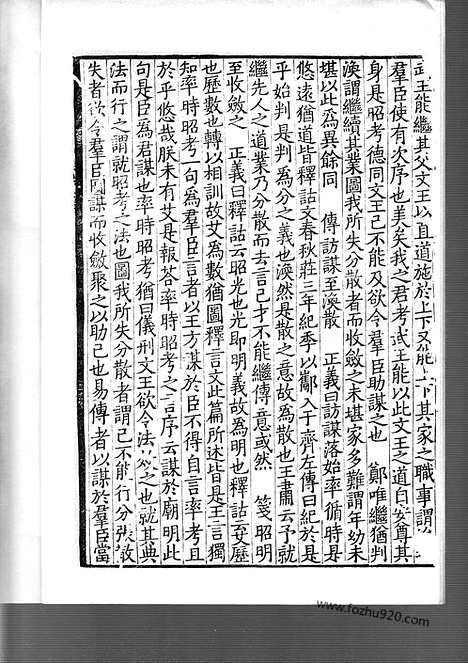 武王能繼其父文王以直道施於上下又能上下其家之職事謂
羣臣使有次序也美矣我之君考武王能以此文王之道自安尊其
身是昭考德同文王己不能及欲令羣臣助謀之也　鄭唯繼猶判
渙謂繼續其業圖我所失分散者而收斂之未堪家多難謂年幼未
堪以此為異餘同　傳訪謀至渙散　正義曰訪謀落始率循時是
悠遠猶道皆釋詁文春秋莊三年紀季以酅入于齊左傳曰紀於是
乎始判是判為分之義也渙然是散之意故為散也王肅云予就
繼先人之道業乃分散而去言己才不能繼傳意或然　箋昭明
至收斂之　正義曰釋詁云昭光也光即明義故為明也釋詁云艾歷
也歷數也轉以相訓故艾為數猶圖釋言文此篇所述皆是王言獨
知率時昭考一句為羣臣言者以王方謀於臣不得自言率考且
於乎悠哉朕未有艾是報荅率時昭考之言序云謀於廟明此
句是臣為君謀也率時昭考猶曰儀刑文王欲令法效之也就其典
法而行之謂就昭考之法也圖我所失分散者謂己不能行分張散
失者欲令羣臣圖謀而收斂聚之以助己也易傳者以謀於羣臣當
www.fozhu920.com